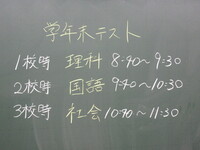 学年末テスト
1校時 理科 8:40~9:30
2校時 国語 9:40~10:30
3校時 社会 10:40~11:30